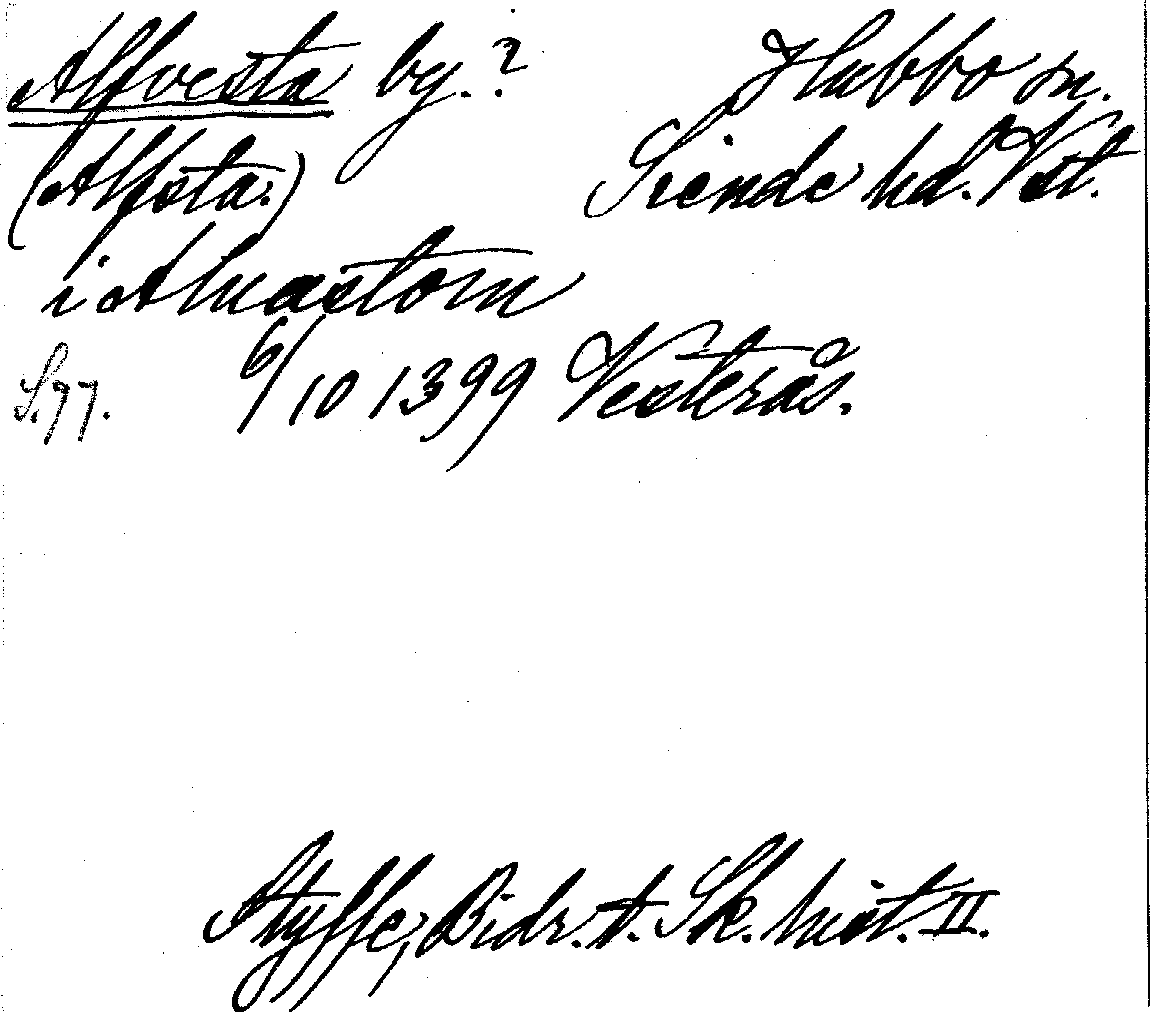 Alfvesta by.? Hubbo sn.
(Alfsta.) Siende hd. Vstl.
i Aluastom
S. 97. 6/10 1399 Vesterås.
Styffe, Bidr. t. Sk. hist. II.